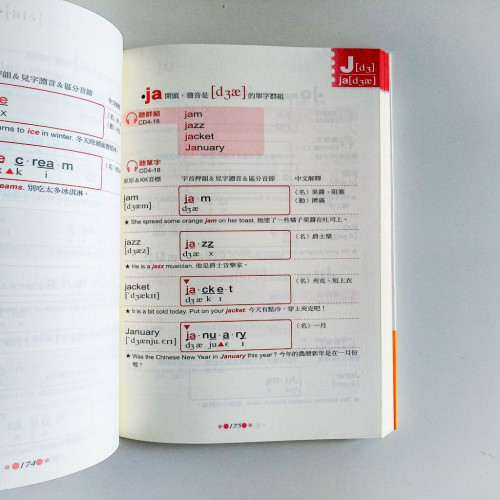 押韻＆見字讀音＆區分音節
中文解釋
x
rns to ice in winter. 冬天時湖面都結
e c·rea·m
k ▲ i m
eams. 別吃太多冰淇淋。
●174●
J[dʒ]
ja[dʒæ]
·ja 開頭，發音是 [dʒæ] 的單字群組
聽群組
CD4-18
jam
jazz
jacket
January
聽單字
CD4-18
KK音標 字首押韻＆見字讀音＆區分音節 中文解釋
jam ja·m （名）果醬，阻塞
[dʒæm] dʒæ （動）擠滿
★ She spread some orange jam on her toast. 她塗了一些橘子果醬在吐司上。
jazz ja·zz （名）爵士樂
[dʒæz] dʒæ x
★ He is a jazz musician. 他是爵士音樂家。
jacket ja·cke·t （名）夾克，短上衣
[ˋdʒækɪt] dʒæ k ɪ
★ It is a bit cold today. Put on your jacket. 今天有點冷，穿上夾克吧！
January ja·nu·a·ry （名）一月
[ˋdʒænjʊˏɛrɪ] dʒæ ju▲ɛ ɪ
★ Was the Chinese New Year in January this year? 今年的農曆新年是在一月份
嗎？
●175●